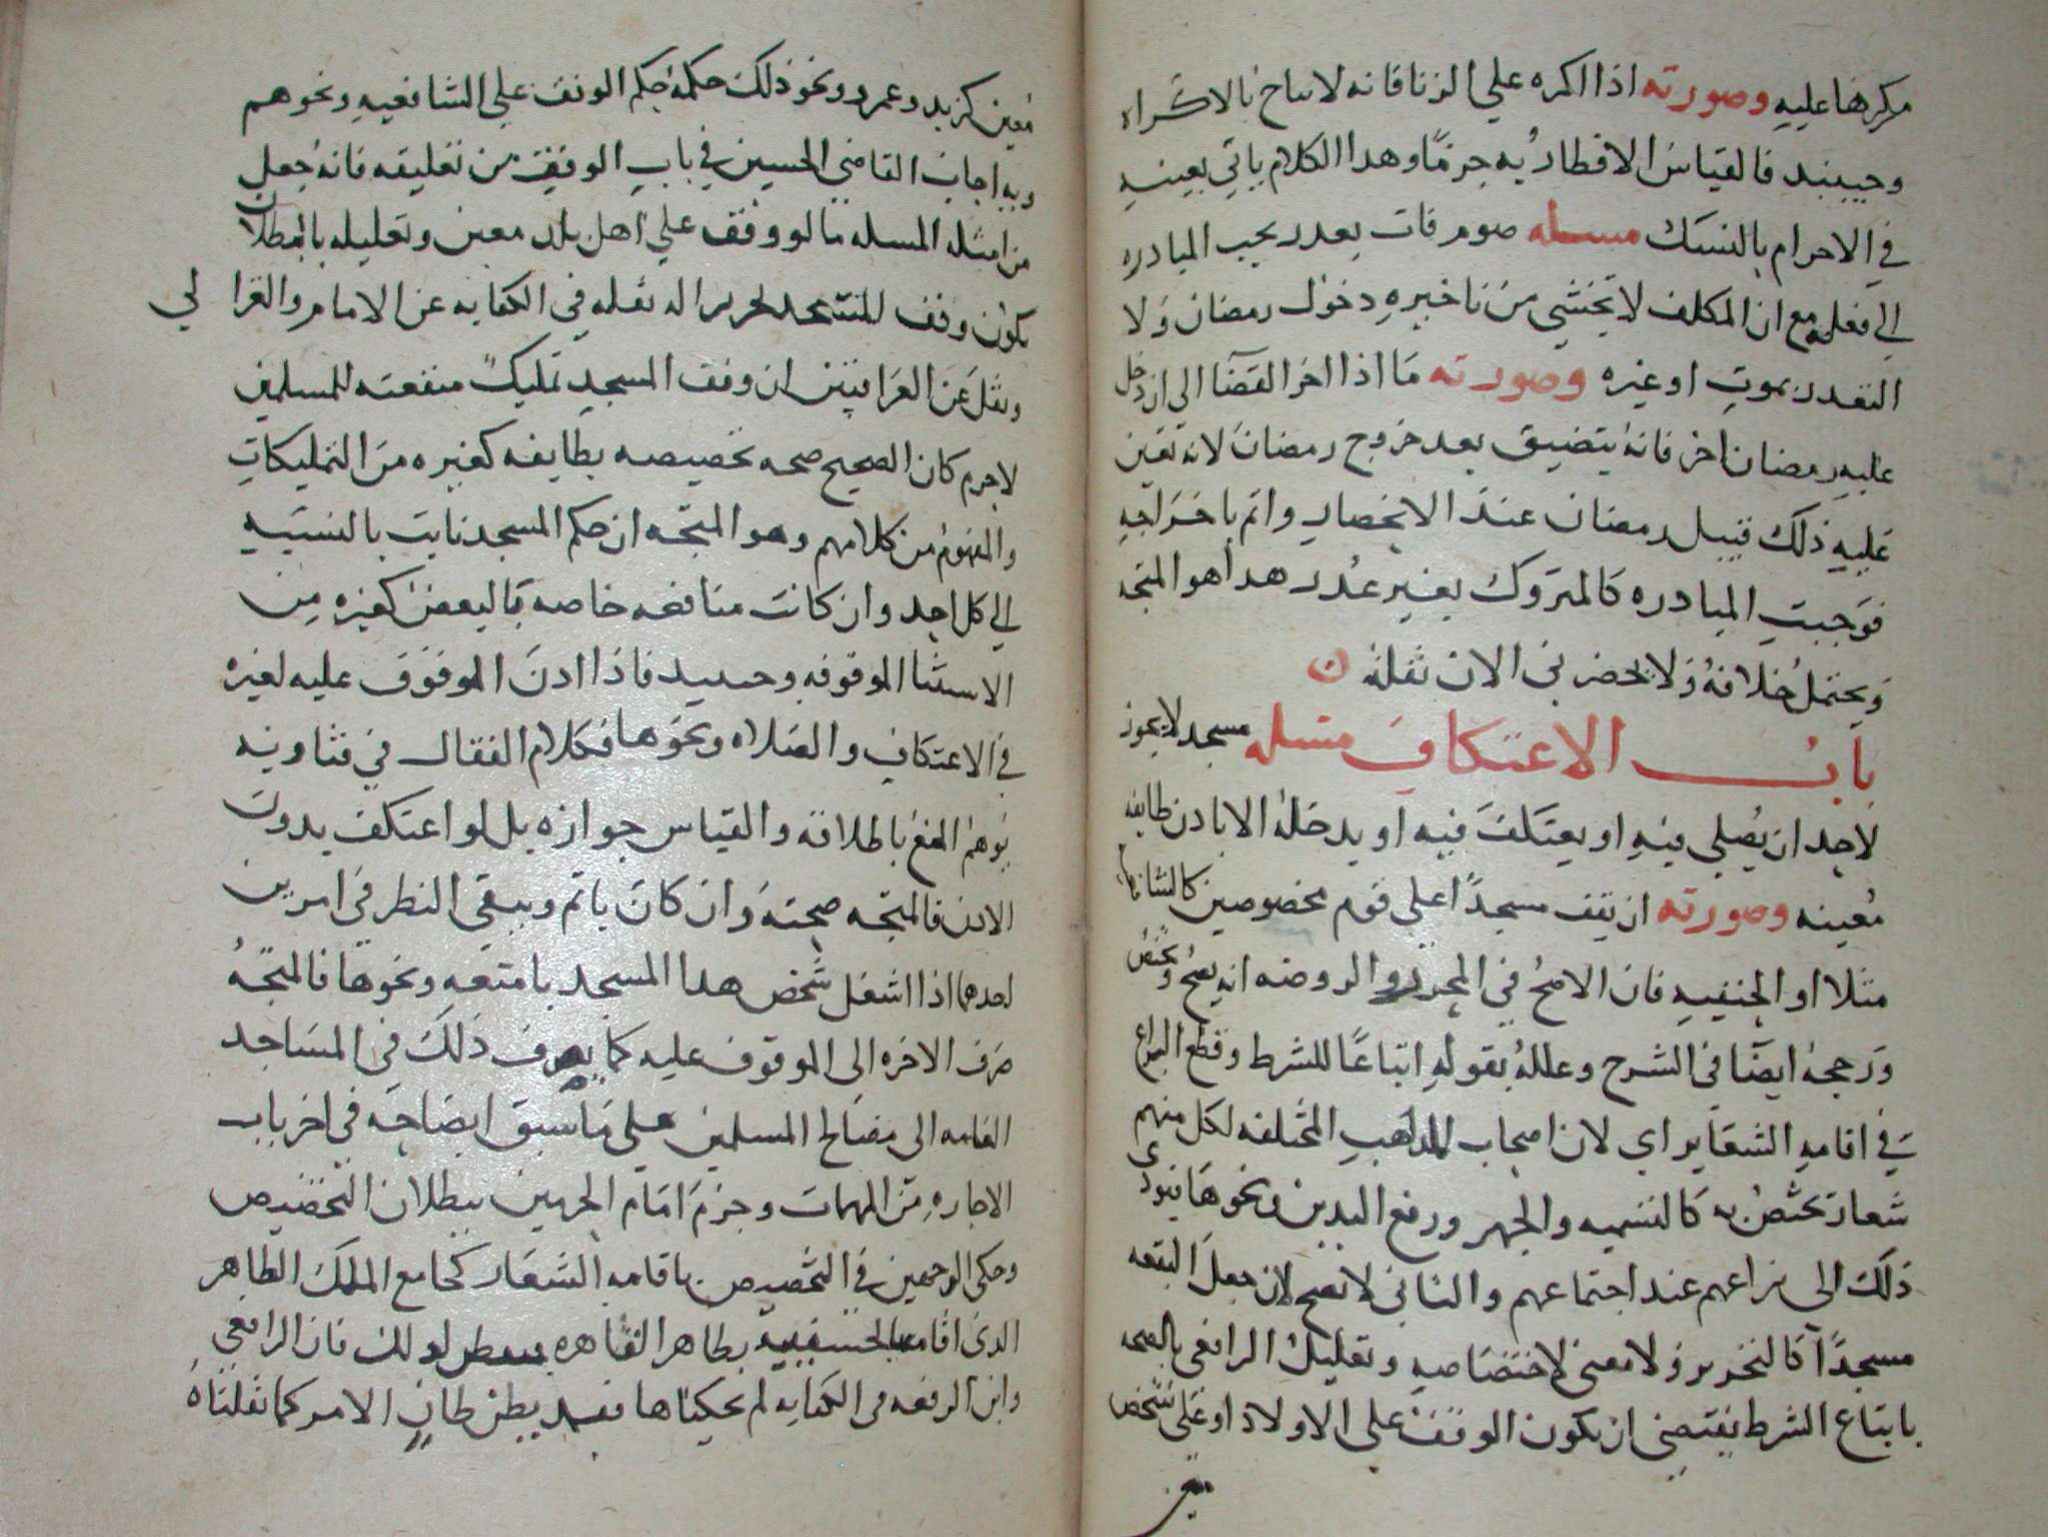 مكرها عليه وصورته اذا اكره على الزنا فانه لا يباح بالاكراه
وحينيد فالقياس الافطار به جزمًا وهدا الكلام ياتي بعينه
في الاحرام بالنسك مسله صوم فات بعدر يجب المبادره
الي فعله مع ان المكلف لا يخشي من تاخيره دخول رمضان ولا
التعدر بموت او غيره وصورته ما اذا اخر القضا الي ان دخل
عليه رمضان اخر فانه يتضيق بعد خروج رمضان لانه تعين
عليه ذلك قبيل رمضان عند الانحصار واثم باخراجه
فوجبت المبادره كالمتروك بغير عدر هدا هو المتجه
ويحتمل خلافه ولا يحضرني الان نقله
باب الاعتكاف مسله مسجد لا يجوز
لاحد ان يصلي فيه او يعتكف فيه او يدخله الا بادن طايفه
معينه وصورته ان يقف مسجدًا علي قوم مخصوصين كالشافعيه
مثلا او الحنفيه فان الاصح في المحرر والروضه انه يصح ويختص
ورجحه ايضًا في الشرح وعلله بقوله اتباعًا للشرط وقطع النزاع
في اقامه الشعاير اي لان اصحاب المداهب المختلفه لكل منهم
شعار يختص به كالتسميه والجهر ورفع اليدين ونحوها فيودي
ذلك الى نزاعهم عند اجتماعهم والثاني لا يصح لان جعل البقعه
مسجدًا كالتحرير ولا معني لاختصاصه وتعليل الرافعي بالصحه
باتباع الشرط يقتضي ان يكون الوقف على الاولاد او على شخص
معين
معين كزيد وعمرو ونحو ذلك حكمه حكم الوقف علي الشافعيه ونحوهم
وبه اجاب القاضي الحسين في باب الوقف من تعليقه فانه جعل
من امثله المسله ما لو وقف علي اهل بلد معين وتعليله بالبطلان
بكون وقف المسجد تحريرا له نقله في الكفايه عن الامام والغزالي
ونقل عن العراقيين ان وقف المسجد تمليك منفعته للمسلمين
لاجرم كان الصحيح صحه تخصيصه بطايفه كغيره من التمليكات
والمفهوم من كلامهم وهو المتجه ان حكم المسجد ثابت بالنسبه
الي كل احد وان كانت منافعه خاصه بالبعض كغيره من
الاشيا الموقوفه وحينيد فاذا ادن الموقوف عليه لغيره
في الاعتكاف والصلاه ونحوها فكلام القفال في فتاويه
يوهم المنع باطلاقه والقياس جوازه بل لو اعتكف بدون
الادن فالمتجه صحته وان كان ياثم ويبقي النطر في امرين
احدهما اذا اشغل شخص هدا المسجد بامتعه ونحوها فالمتجه
صرف الاجره الي الموقوف عليه كما يصرف ذلك في المساجد
العامه الى مصالح المسلمين علي ما سبق ايضاحه في اخر باب
الاجاره من المهمات وجزم امام الحرمين ببطلان التخصيص
وحكى الوجهين في التخصيص باقامه الشعار كجامع الملك الطاهر
الدي اقامه بالحسينيه بطاهر القاهره فتفطن لدلك فان الرافعي
وابن الرفعه في الكفايه لم يحكياها فقد يطن طان الامر كما نقلناه